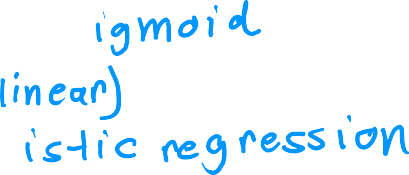 igmoid
linear)
istic regression